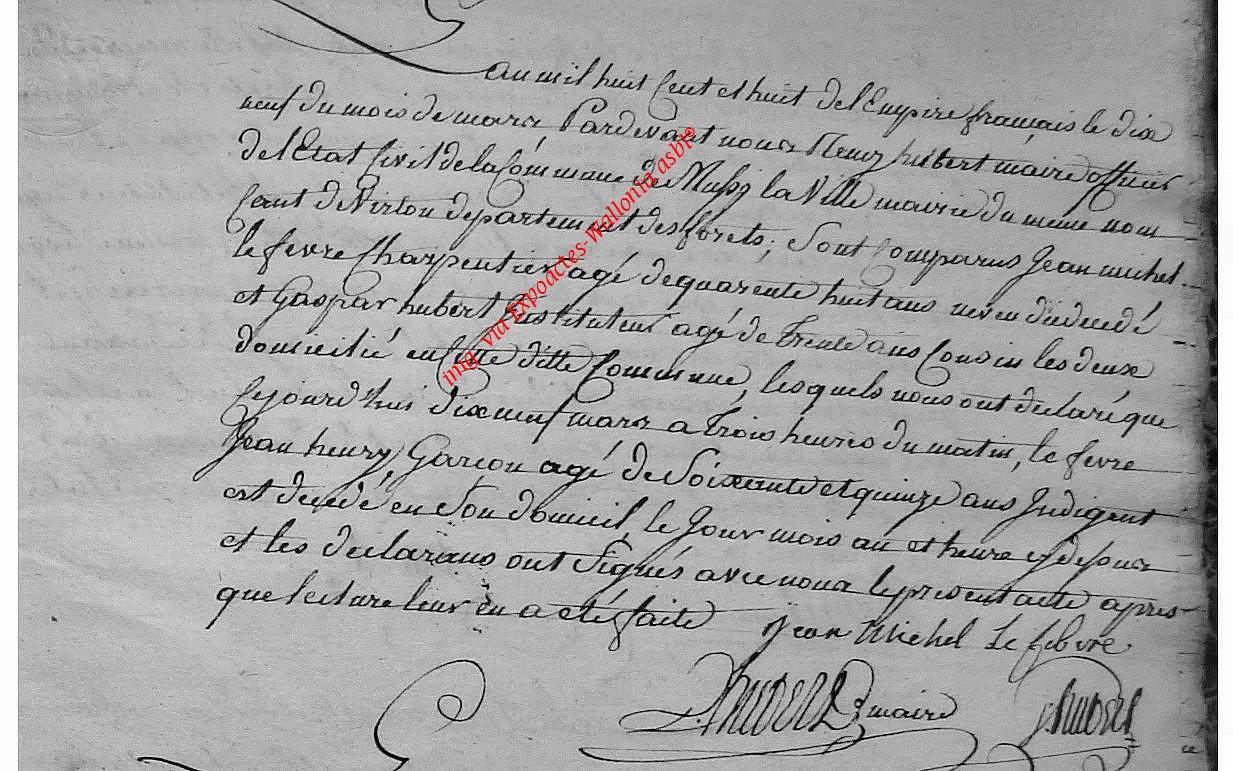 L'an mil huit Cent et huit de l'Empire français le dix
neuf du mois de mars Pardevant nous henry hubert maire officier
de l'Etat Civil de la Commune de Mussy la Ville mairie du meme nom
Cant de Virton departement des forets, Sont Comparus Jean michel
le fevre Charpentier agé de quarente huit ans neveu du decedé
et Gaspar hubert Instituteur agé de Trente ans Cousin les deux
domicilié en Cette ditte Commune, lesquels nous ont declaré que
Cejourd'huis dix neuf mars a Trois heures du matin, le fevre
Jean henry Garcon agé de Soixente et quinze ans Indigent
est decedé en Son domicil, le Jour mois an et heure cy dessus
et les declarans ont Signés avec nous le present acte apres
que lecture leur en a eté faite Jean Michel Le febvre
hubert maire g hubert
img. via Expoactes-Wallonia asbl©